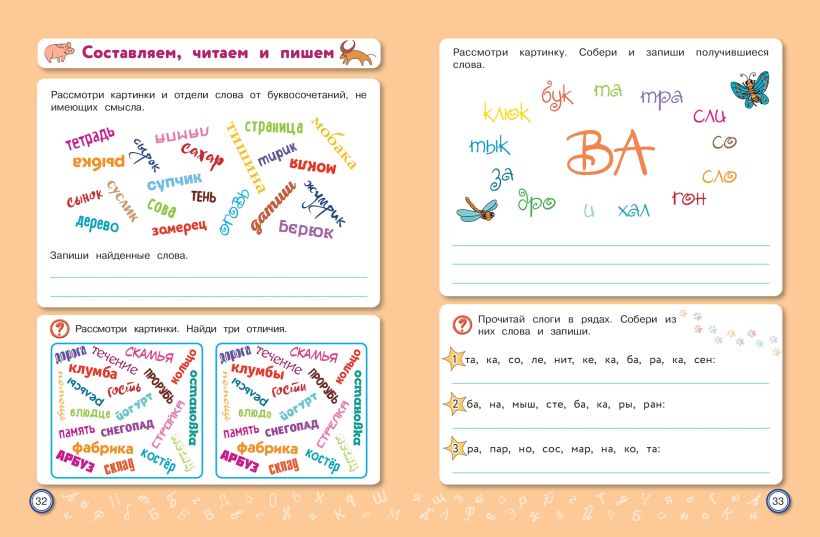 Составляем, читаем и пишем
Рассмотри картинки и отдели слова от буквосочетаний, не
имеющих смысла.
тетрадь
рыбка
сырок
сахар
тишина
страница
тирик
мобака
мокия
сынок
суслик
супчик
сова
тень
дерево
замерец
датиш
жумрик
берюк
Запиши найденные слова.
Рассмотри картинки. Найди три отличия.
дорога
течение
скамья
кольцо
клумба
помощь
гость
прорубь
остановка
блюдце
йогурт
стрелка
память
снегопад
фабрика
костёр
арбуз
склад
дорога
течение
скамья
кольцо
клумбы
помощь
гости
прорубь
остановка
блюдо
йогурт
стрелка
память
снегопад
фабрика
костёр
арбуз
склад
32
Рассмотри картинку. Собери и запиши получившиеся
слова.
клюк
бук
та
тра
сли
со
сло
гон
хал
и
дро
за
тык
ВА
Прочитай слоги в рядах. Собери из
них слова и запиши.
1 та, ка, со, ле, нит, ке, ка, ба, ра, ка, сен:
2 ба, на, мыш, сте, ба, ка, ры, ран:
3 ра, пар, но, сос, мар, на, ко, та:
33